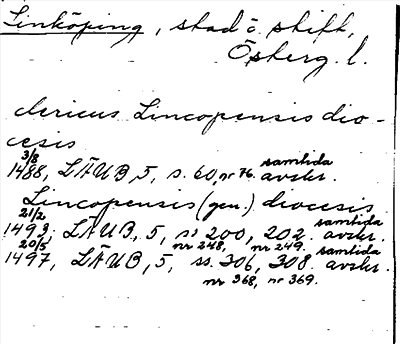 Linköping, stad o. stift,
Österg. l.
clericus Lincopensis dio-
cesis
3/8 samtida
1488, LÄUB, 5, s. 60, nr 76. avskr.
Lincopensis (gen.) diocesis
21/2 samtida
1493, LÄUB, 5, ss 200, 202. avskr.
20/5 nr 248, nr 249. samtida
1497, LÄUB, 5, ss. 306, 308. avskr.
nr 368, nr 369.